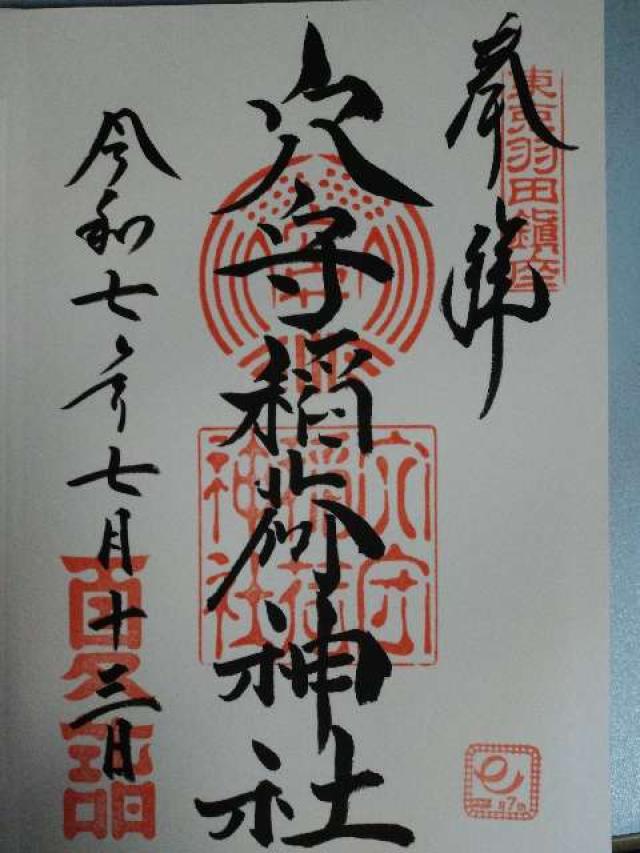 奉拝
東京羽田鎮座
穴守稲荷神社
穴守
稲荷
神社
令和七年七月十三日